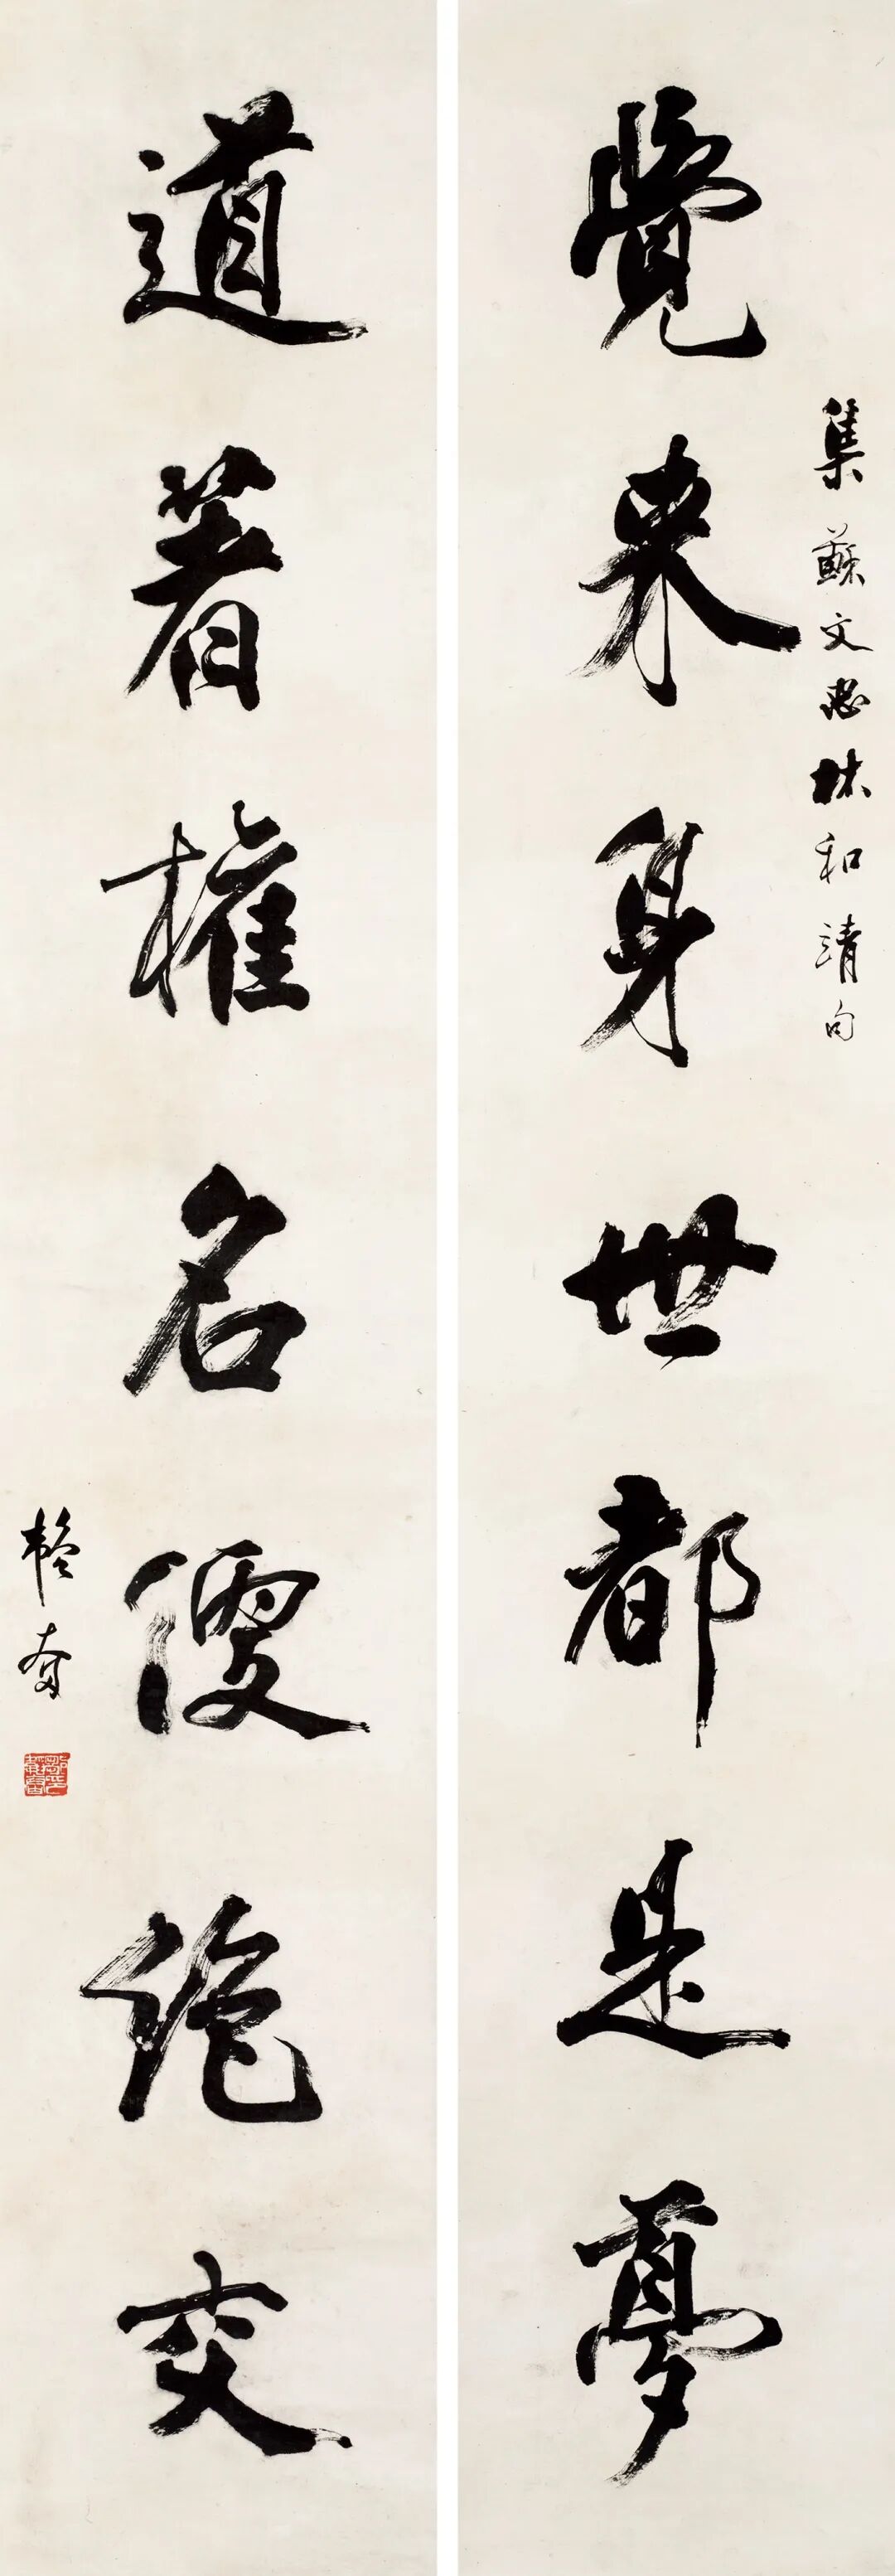 覺來身世都是夢
集蘇文忠林和靖句
道著權名便絕交
韜奮